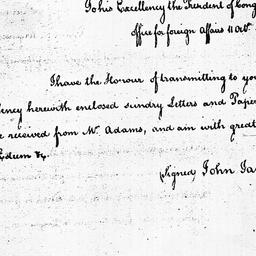 To his Excellency the President of Cong
Office for foreign Affairs 11 Oct.
I have the Honour of transmitting to yo
lency herewith enclosed sundry Letters and Paper
e received from Mr. Adams, and am with great
Esteem &c.
(Signed) John Ja